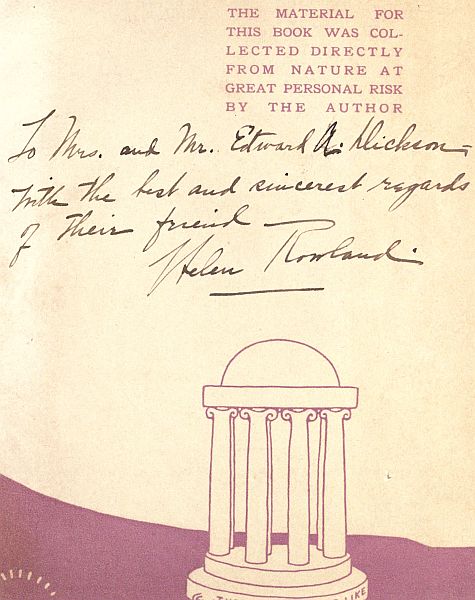 THE MATERIAL FOR
THIS BOOK WAS COL-
LECTED DIRECTLY
FROM NATURE AT
GREAT PERSONAL RISK
BY THE AUTHOR
To Mrs. and Mr. Edward A. Dickson –
With the best and sincerest regards
of their friend —
Helen Rowland.
LIKE